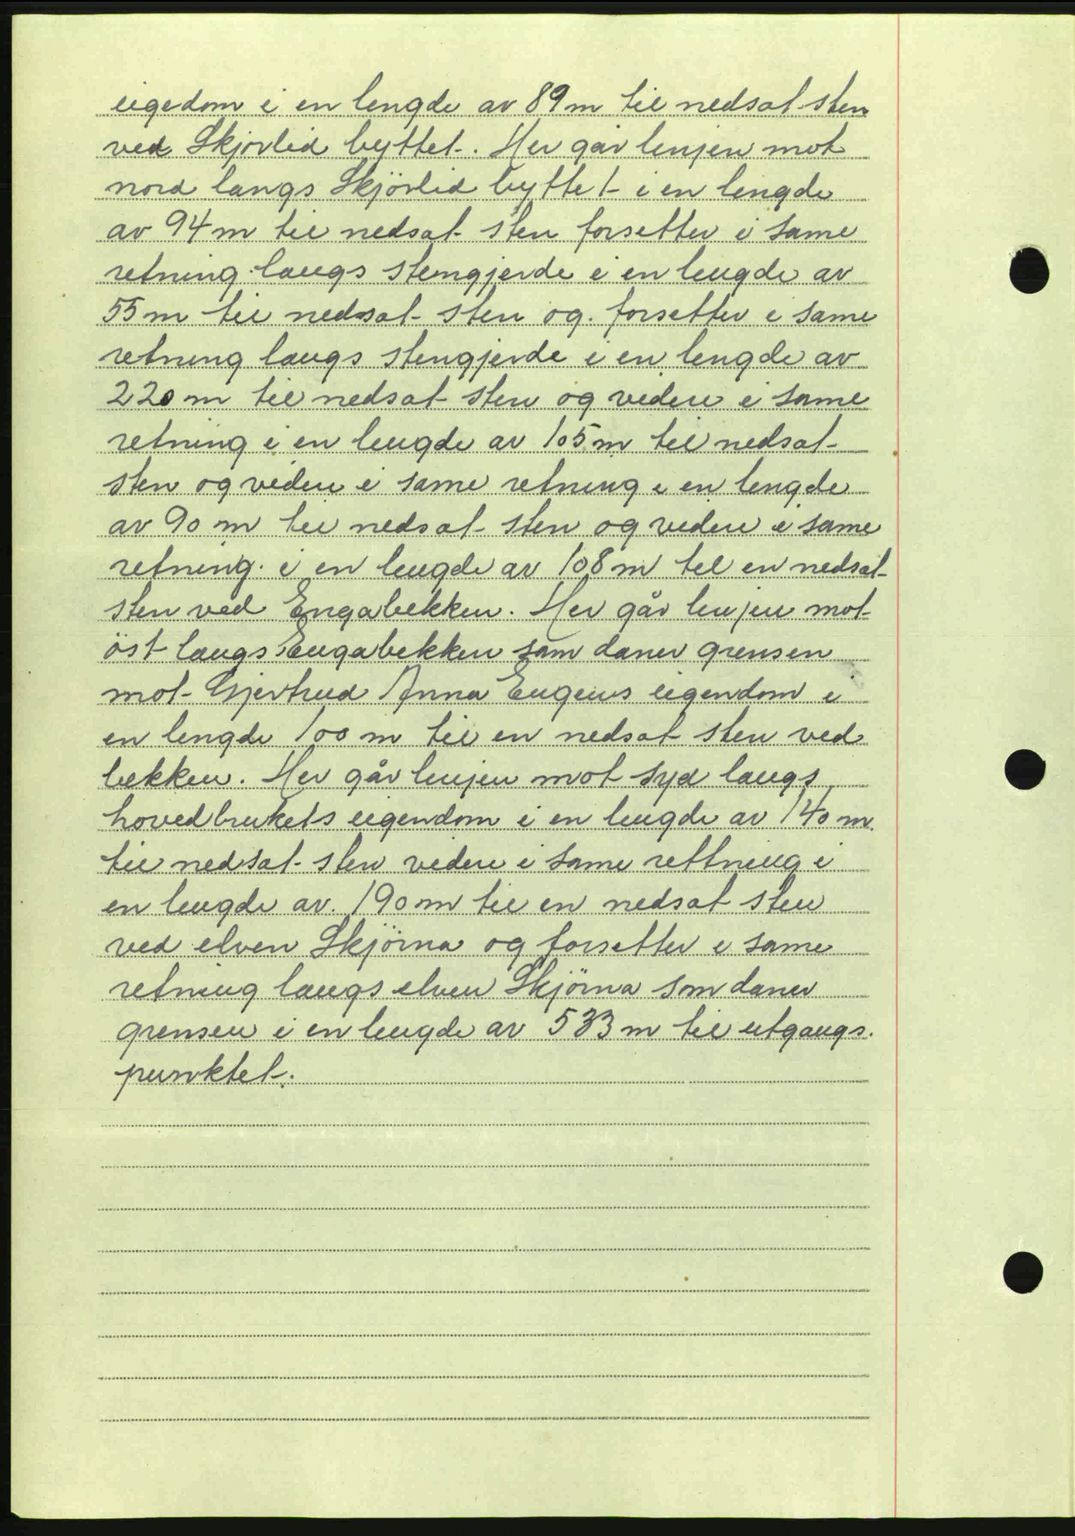 eigedom i en lengde av 89 m til nedsat sten
ved Skjörlid byttet. Her går lenjen mot
nord langs Skjörlid byttet i en lengde
av 94 m til nedsat sten forsetter i same
retning langs stengjerde i en lengde av
55 m til nedsat sten og. forsetter i same
retning langs stengjerde i en lengde av
220 m til nedsat sten og videre i same
retning i en lengde av 105 m til nedsat
sten og videre i same retning i en lengde
av 90 m til nedsat sten og videre i same
retning. i en lengde av 108 m til en nedsat
sten ved Engabekken. Her går lenjen mot
öst langs Engabekken som daner grensen
mot Gjertrud Anna Engens eigendom i
en lengde 100 m til en nedsat sten ved
bekken. Her går lenjen mot syd langs
hovedbrukets eigendom i en lengde av 140 m.
til nedsat sten videre i same rettning i
en lengde av. 190 m til en nedsat sten
ved elven Skjörna og forsetter i same
retning langs elven Skjörna som daner
grensen i en lengde av 533 m til utgangs.
punktet.